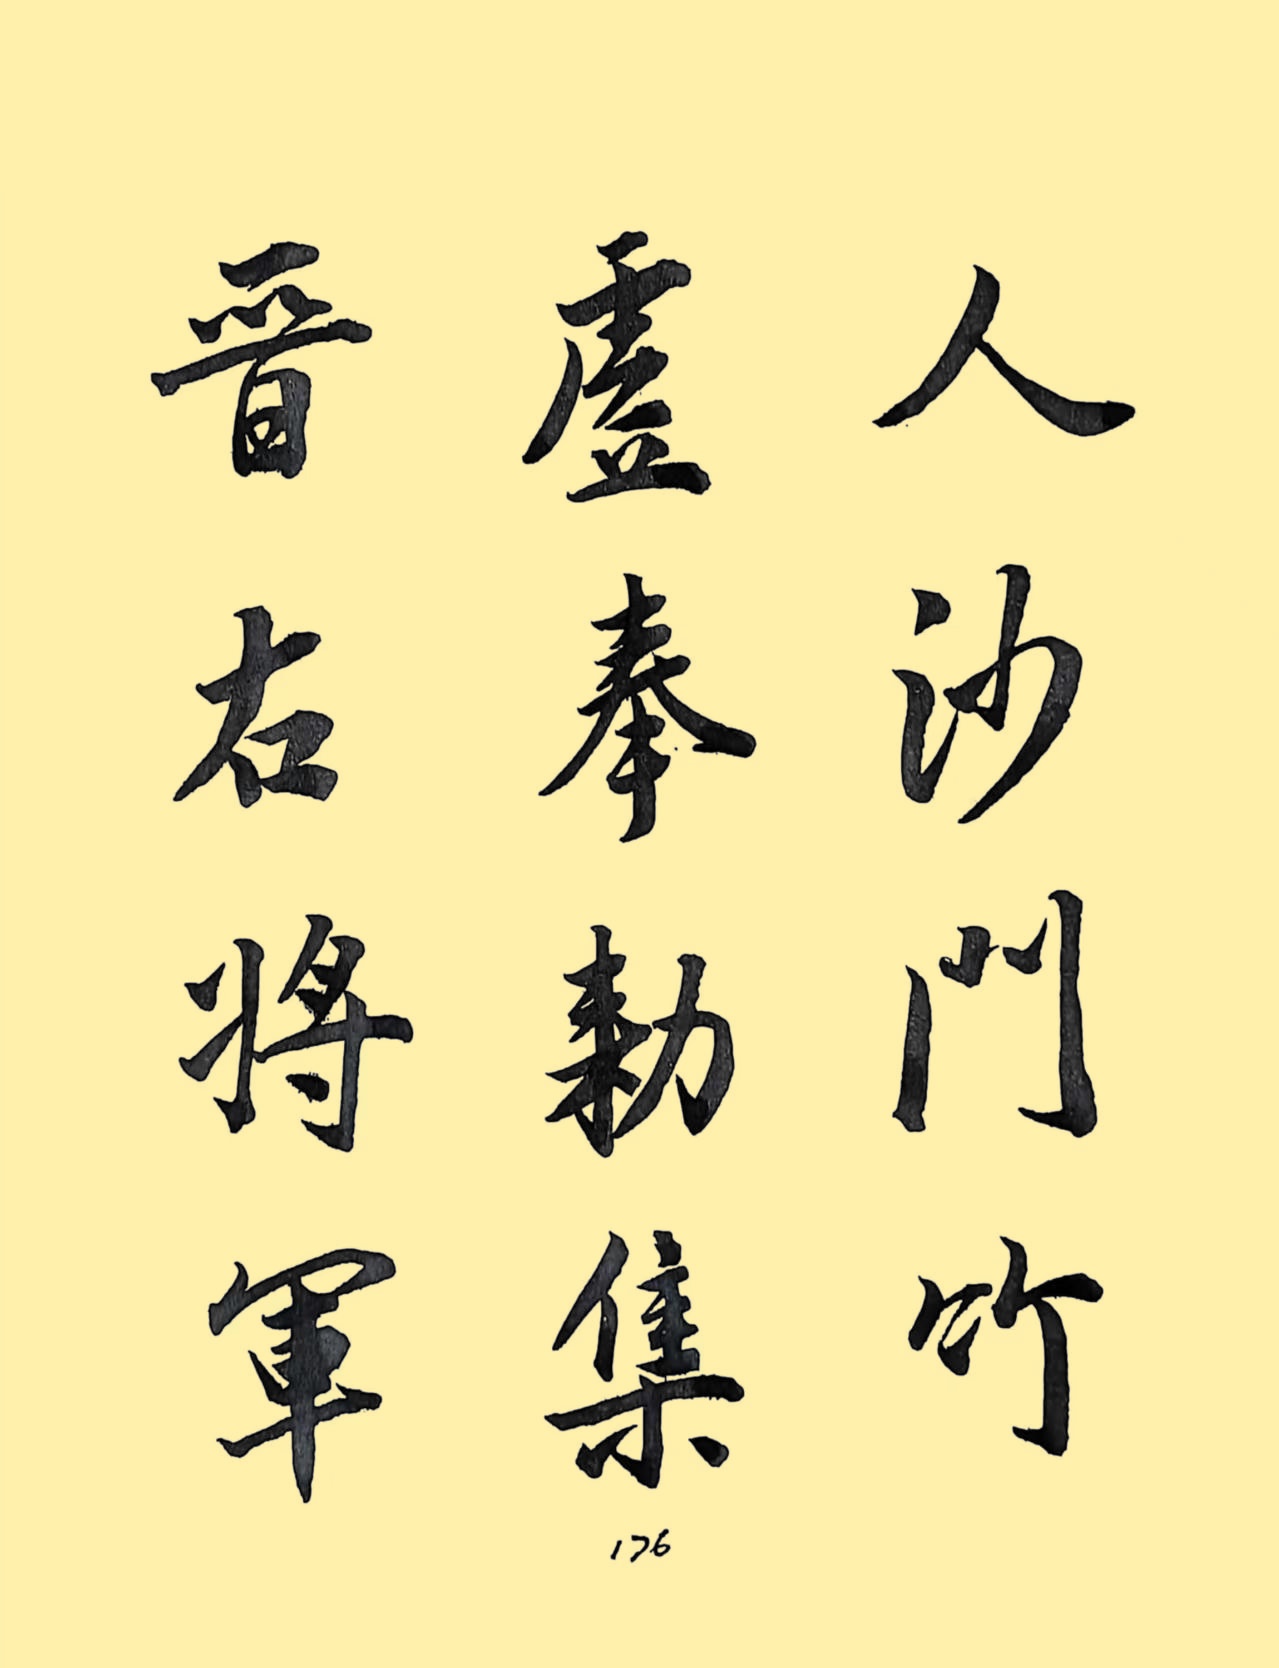 人沙門竹
虛奉勅集
晉右將軍
176